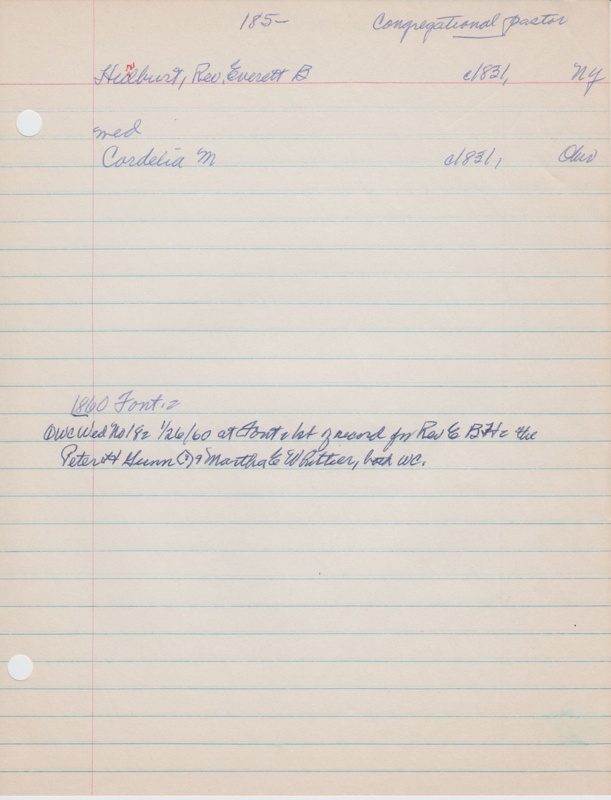 185- Congregational pastor
Hulburt, Rev. Everett B c1831, NY
med
Cordelia M c1831, Ohio
1860 Font :2
OWC Wed No 182 1/26/60 at Font 1st of record for Rev E B H: the
Peter H Gunn (?) & Martha E Whittier, both WC.